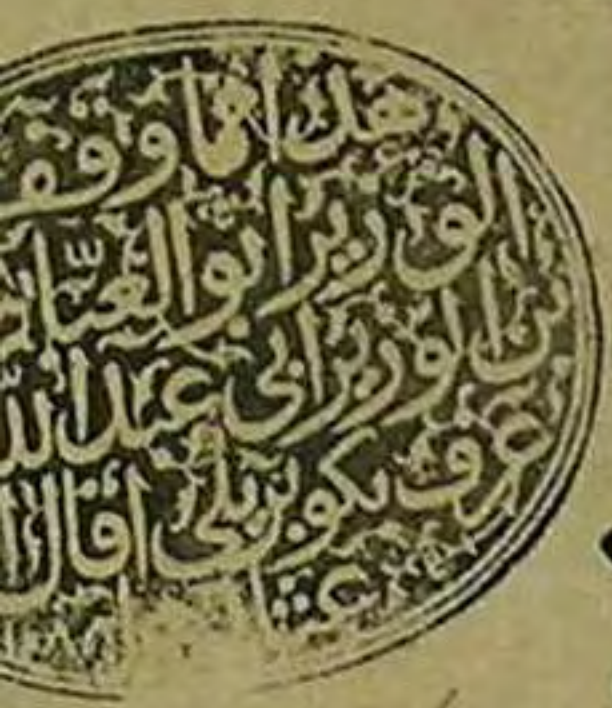 هذا ما وقف
الوزير ابو العبا
بن الوزير ابي عبد الله
عرف بكوپريلي اقال ا
عثا